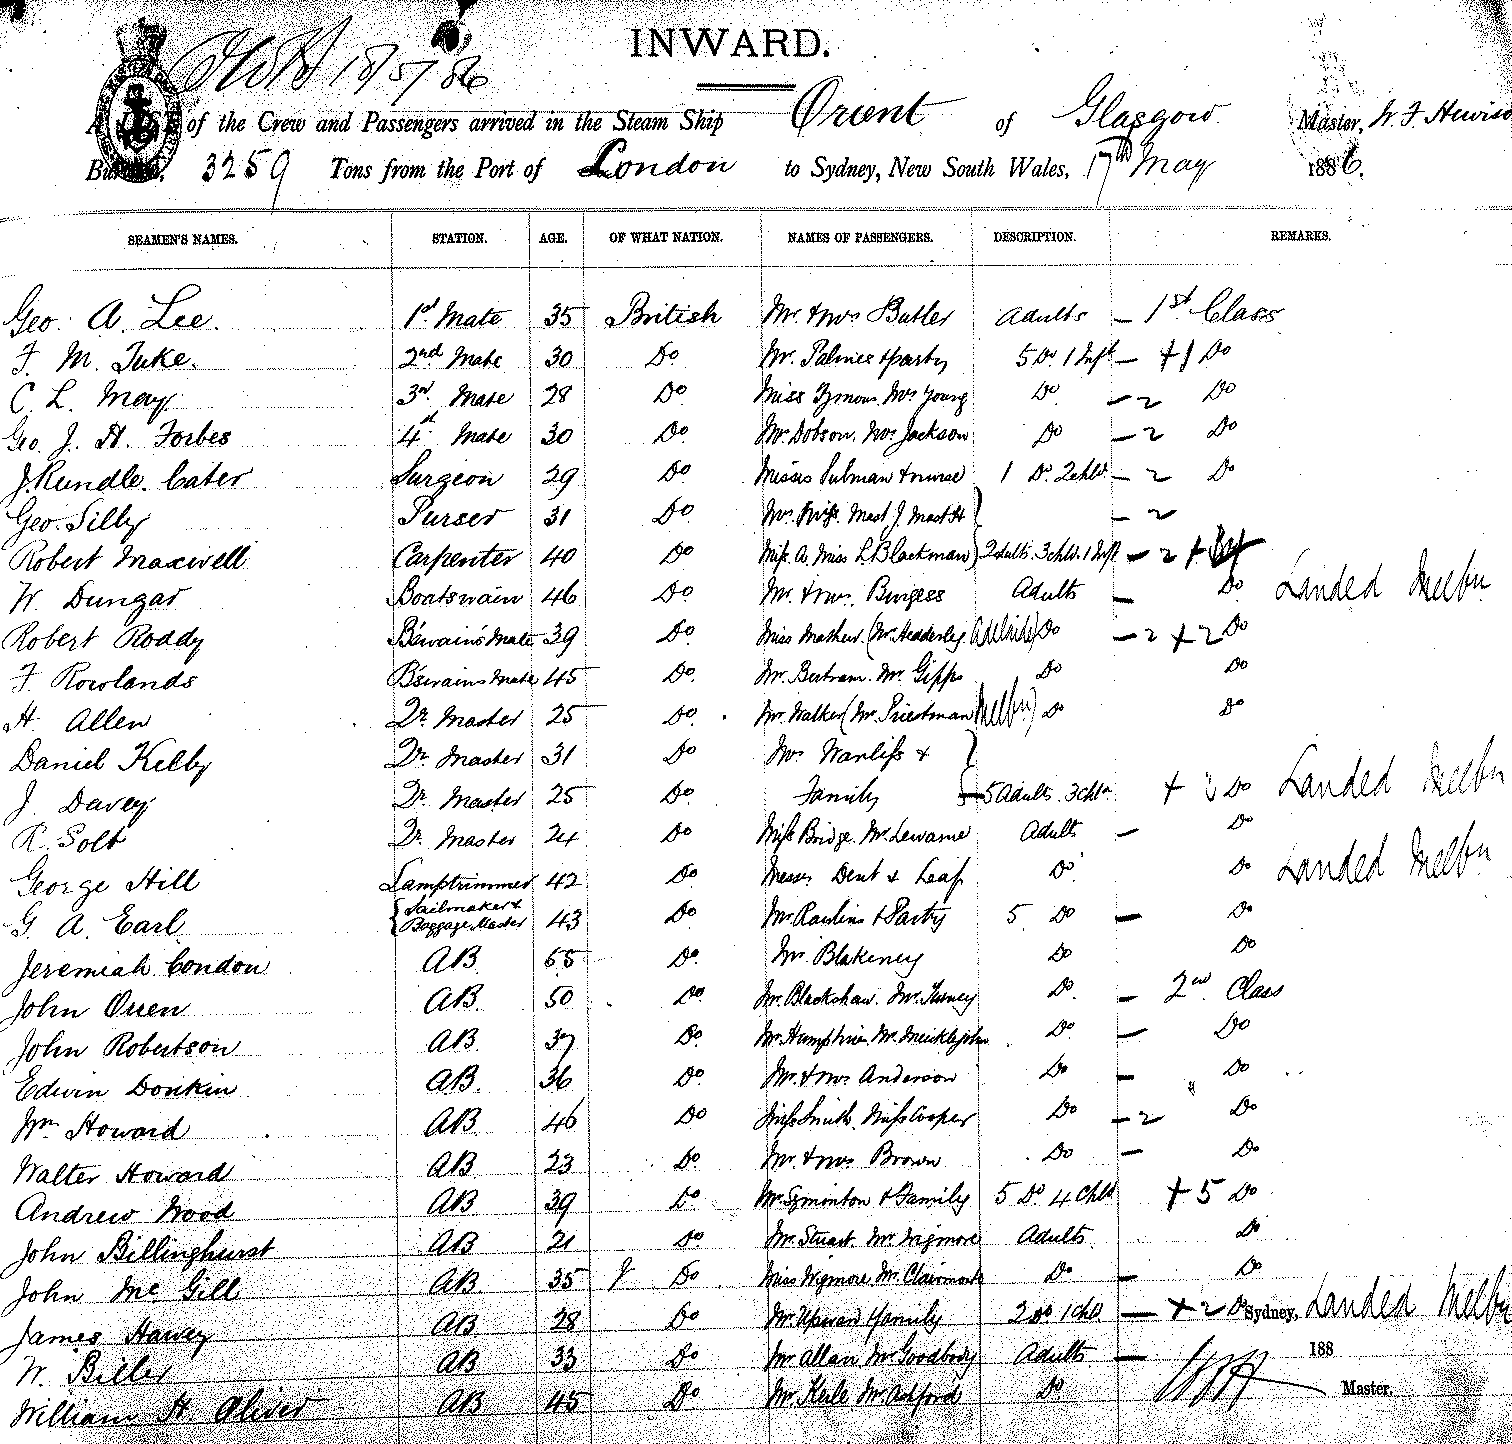 INWARD.
18/5/86
of the Crew and Passengers arrived in the Steam Ship Orient of Glasgow Master, W. F. Hewiso
3259 Tons from the Port of London to Sydney, New South Wales, 17th May 1886.
SEAMEN'S NAMES. STATION. AGE. OF WHAT NATION. NAMES OF PASSENGERS. DESCRIPTION. REMARKS.
Geo. A. Lee. 1st Mate 35 British Mr. & Mrs Butler Adults — 1st Class
F. M. Tuke. 2nd Mate 30 Do Mr. Palmer & party 5 Do 1 Inft — +1 Do
C. L. May 3rd Mate 28 Do Miss Mrs Young Do — 2 Do
Geo. J. H. Forbes 4th Mate 30 Do Mr Dobson. Mrs Jackson Do — 2 Do
J. Rundle. Cater Surgeon 29 Do Misses Pulman & nurse 1 Do 2 chld — 2 Do
Geo. Silby Purser 31 Do Mrs Miss. Mast J. Mast H — 2
Robert Maxwell Carpenter 40 Do Miss A. Miss L. Blackman 2 Adults. 3 chld. 1 Inft — 2 +
W. Dungar Boatswain 46 Do Mr. & Mrs. Burgess Adults — Do Landed Melbn
Robert Roddy B'swain's Mate 39 Do Miss Mather (Mr. Hedderley Adelaide) Do — 2 + 2 Do
F. Rowlands B'swains Mate 45 Do Mr. Bertram. Mr. Gipps Do Do
H. Allen Qr. Master 25 Do Mr. Walker (Mr. Priestman Melbn) Do Do
Daniel Kelly Qr. Master 31 Do Mrs Wanliss &
J. Davey Qr. Master 25 Do Family — 5 Adults. 3 chldn + Do Landed Melbn
R. Solt Qr. Master 24 Do Miss Bridge. Mr. Lewarne Adults — Do
George Hill Lamptrimmer 42 Do Messrs Dent & Leaf Do Do Landed Melbn
G. A. Earl. Sailmaker & Baggage Master 43 Do Mr. Rawlins & Party 5 Do — Do
Jeremiah Condon AB. 55 Do Mr. Blakeney Do Do
John Orren AB. 50 Do Mr. Blackshaw. Mr. Turney Do — 2nd Class
John Robertson AB. 37 Do Mr Humphries Mr. Meiklejohn Do — Do
Edwin Donkin AB. 36 Do Mr. & Mrs Anderson Do — Do
Wm Howard AB. 46 Do Miss Smith Miss Cooper Do — 2 Do
Walter Howard AB 23 Do Mr. & Mrs Brown Do — Do
Andrew Wood AB 39 Do Mr. Syminton & Family 5 Do 4 Chld + 5 Do
John Billinghurst AB 21 Do Mr. Stuart. Mr. Wigmore Adults. Do
John Mc Gill AB. 35 Do Miss Wigmore Mr. Clairmonte Do — Do
James Harvey AB 28 Do Mr. & family 2 Do 1 chld. — + 2 Do Sydney, Landed Melbn
W. Biller AB 33 Do Mr Allan Mr Goodbody Adults — 188
William H. Oliver AB 45 Do Mr. Mr. Ashford Do Master.